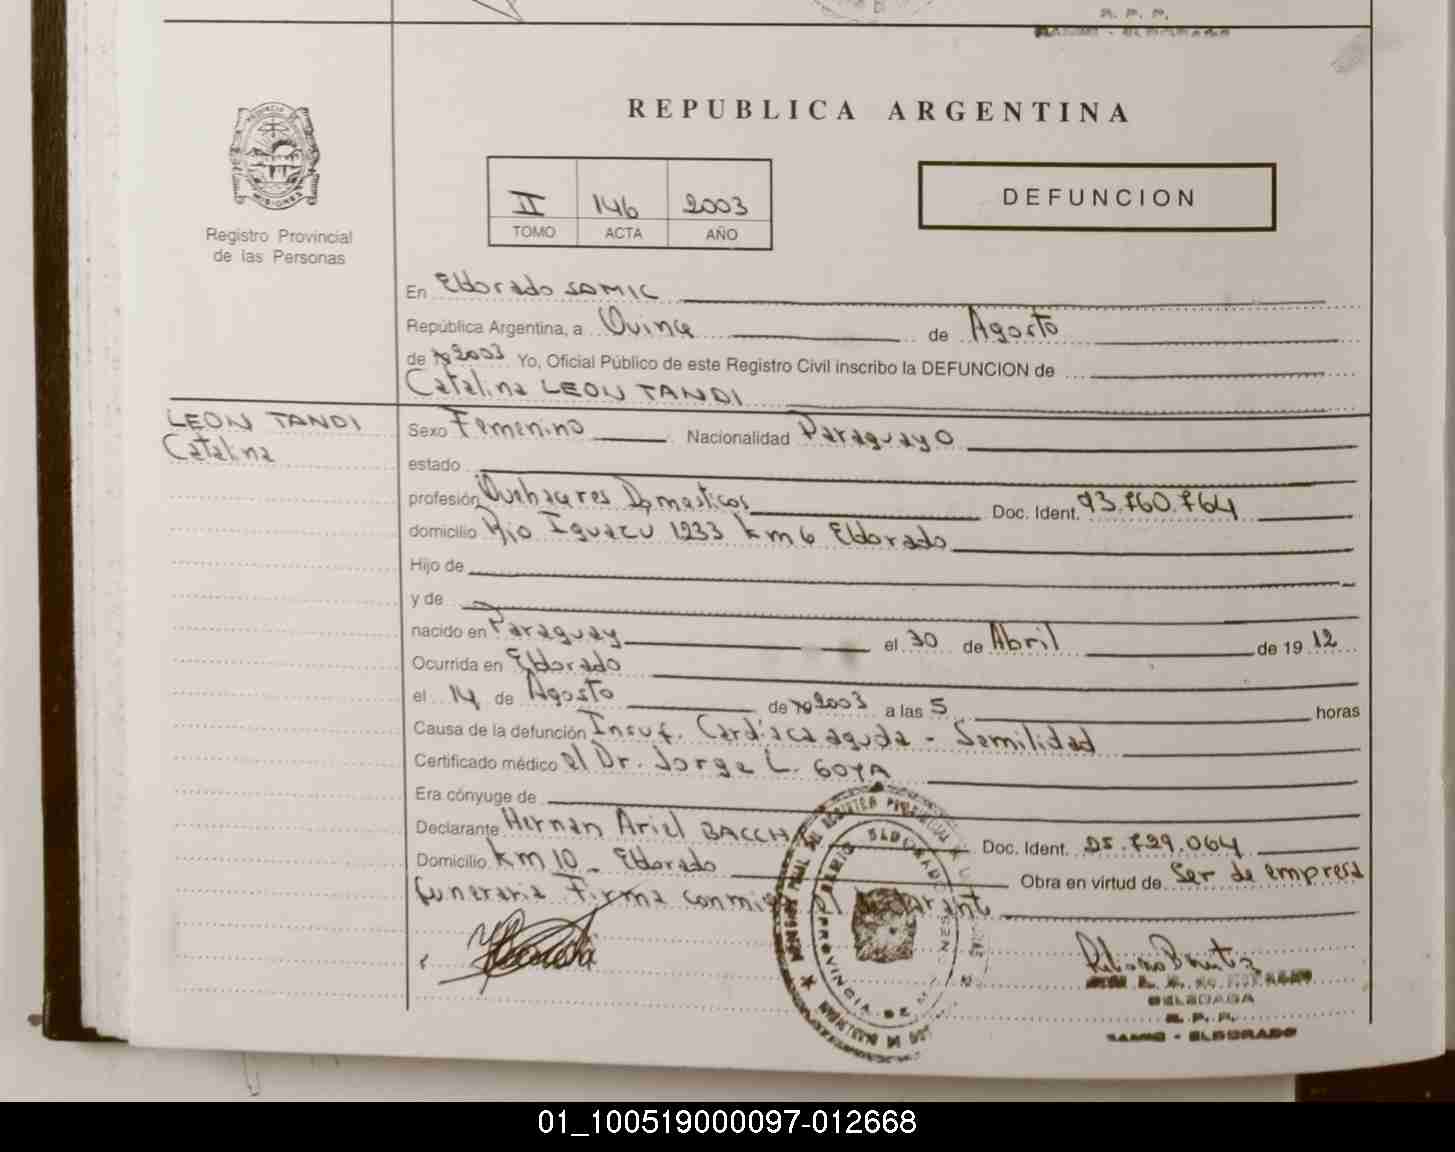 R. P. P.
SAMIC - ELDORADO
PROVINCIA DE
MISIONES
Registro Provincial
de las Personas
REPUBLICA ARGENTINA
II 146 2003
TOMO ACTA AÑO
DEFUNCION
En Eldorado SAMIC
República Argentina, a Quince de Agosto
de 2003 Yo, Oficial Público de este Registro Civil inscribo la DEFUNCION de
Catalina LEON TANDI
LEON TANDI
Catalina
Sexo Femenino Nacionalidad Paraguayo
estado
profesión Quehaceres Domesticos Doc. Ident. 93.760.764
domicilio Rio Iguazu 1233 km 6 Eldorado
Hijo de
y de
nacido en Paraguay el 30 de Abril de 19 12
Ocurrida en Eldorado
el 14 de Agosto de 2003 a las 5 horas
Causa de la defunción Insuf. Cardiaca aguda - Semilidad
Certificado médico el Dr. Jorge L. GOYA
Era cónyuge de
Declarante Hernan Ariel BACCHI Doc. Ident. 25.729.064
Domicilio km 10 - Eldorado Obra en virtud de Ser de empresa
funeraria Firma conmigo el declarante
DELEGADA
R. P. P.
SAMIC - ELDORADO
01_100519000097-012668